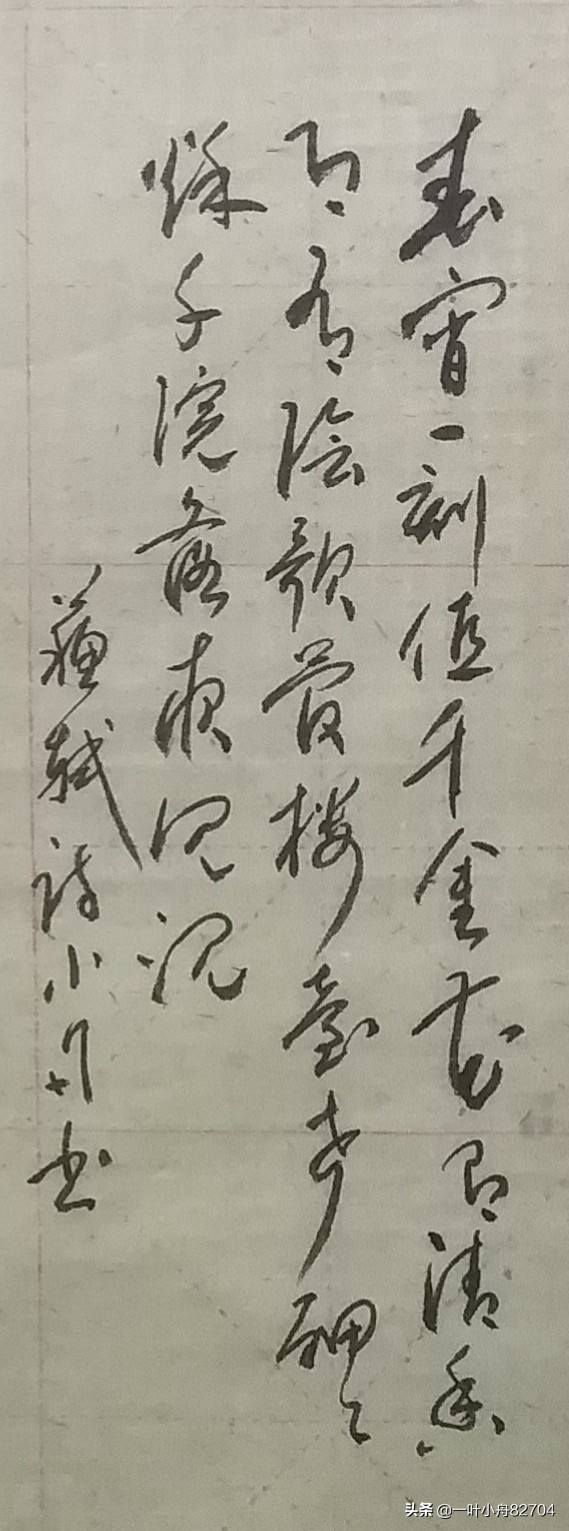 春宵一刻值千金花有清香
月有陰歌管楼臺声細々
秋千院落夜沉沉
蘇軾诗小舟书
头条 @一叶小舟82704